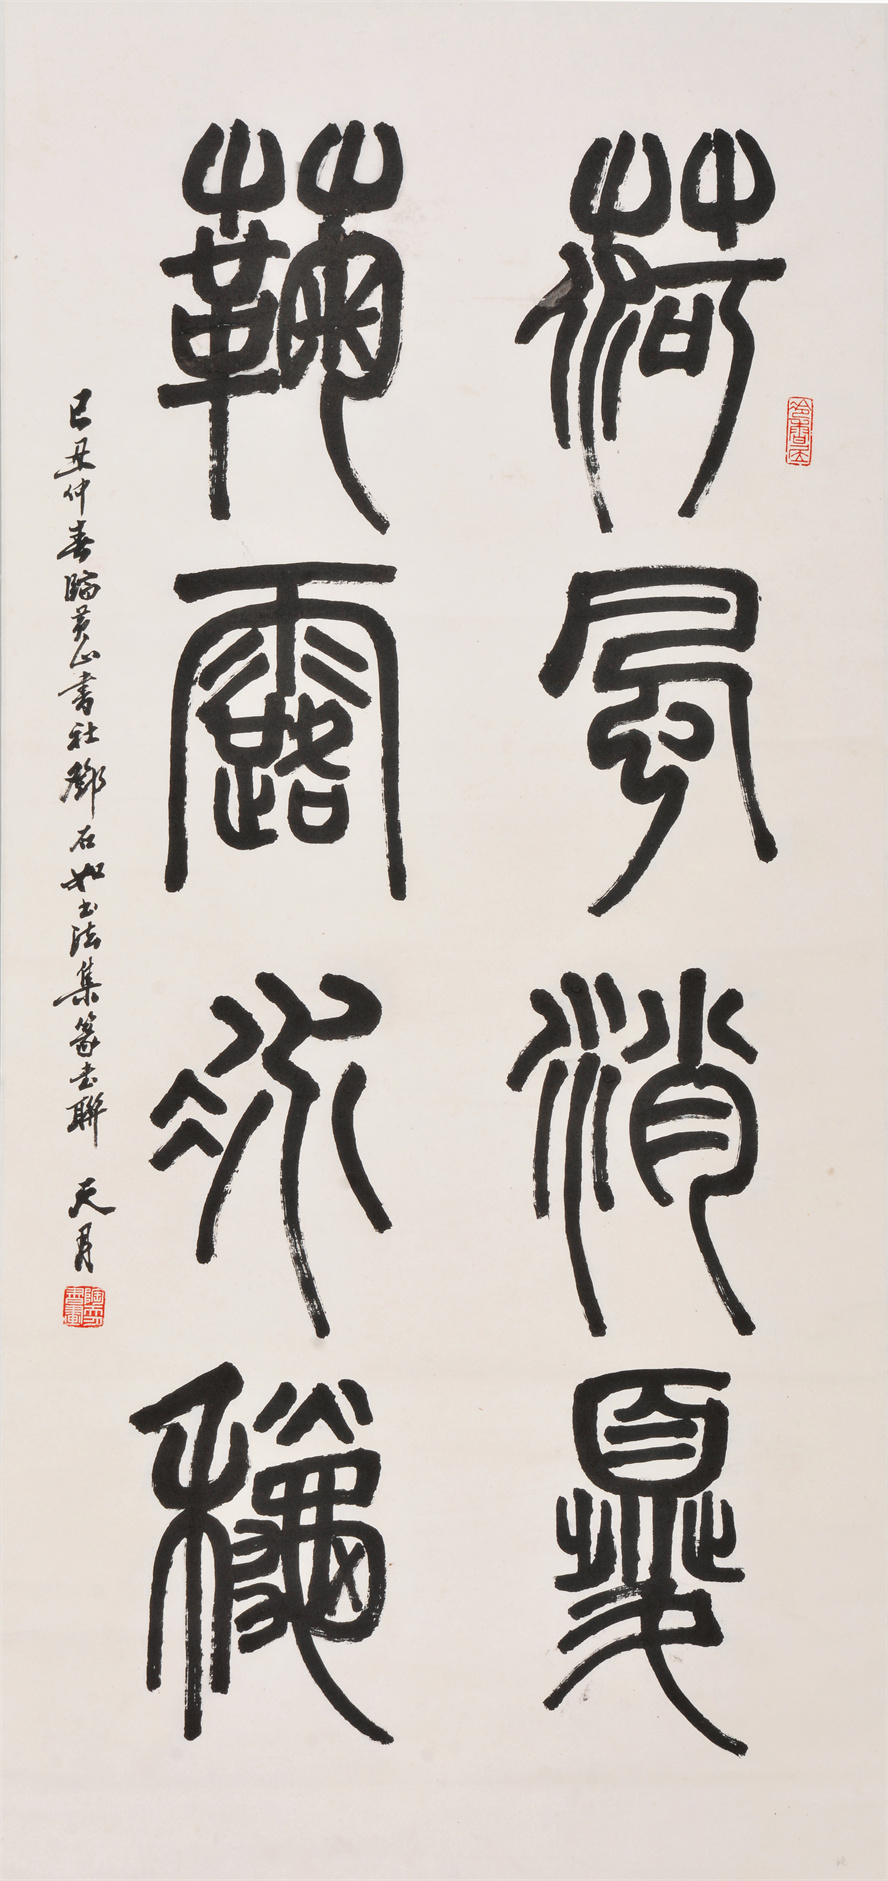 荷風消夏
蘜露冰龝
己丑仲春臨黃山書社鄧石如書法集篆書聯 天月